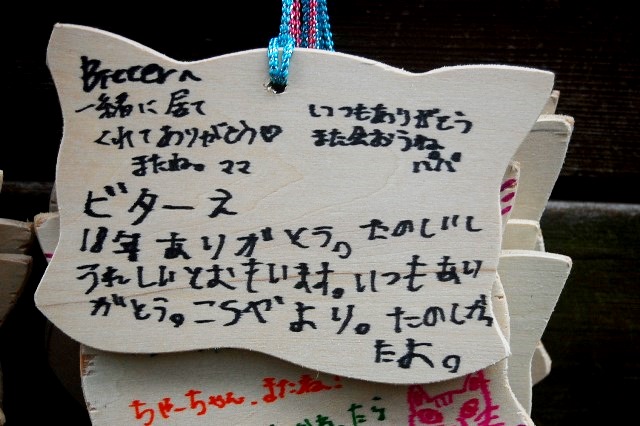 Bitterへ
一緒に居て
くれてありがとう♡
またね。ママ
いつもありがとう
また会おうね
パパ
ビターえ
18年ありがとう。たのしいし
うれしいとおもいます。いつもあり
がとう。こらやより。たのしか
たよ。
ちゃーちゃん、またね!